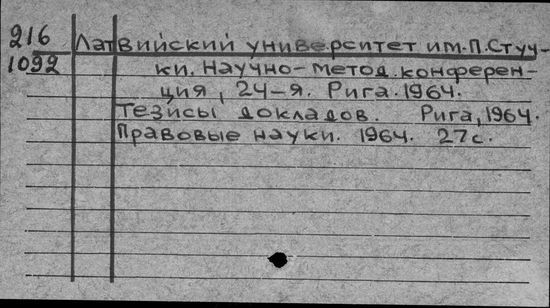 216
1092
Латвийский университет им.П.Студ-
ки. Научно-метод.конферен-
ция, 24-я. Рига.1964.
Тезисы докладов. Рига,1964.
Правовые науки. 1964. 27с.